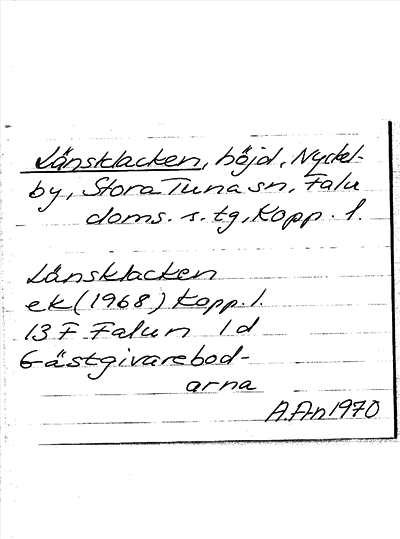 Länsklacken, höjd, Nyckel-
by, Stora Tuna sn, Falu
doms. s. tg, Kopp. l.
Länsklacken
ek (1968) Kopp. l.
13 F Falun 1d
Gästgivarebod-
arna
A.An 1970